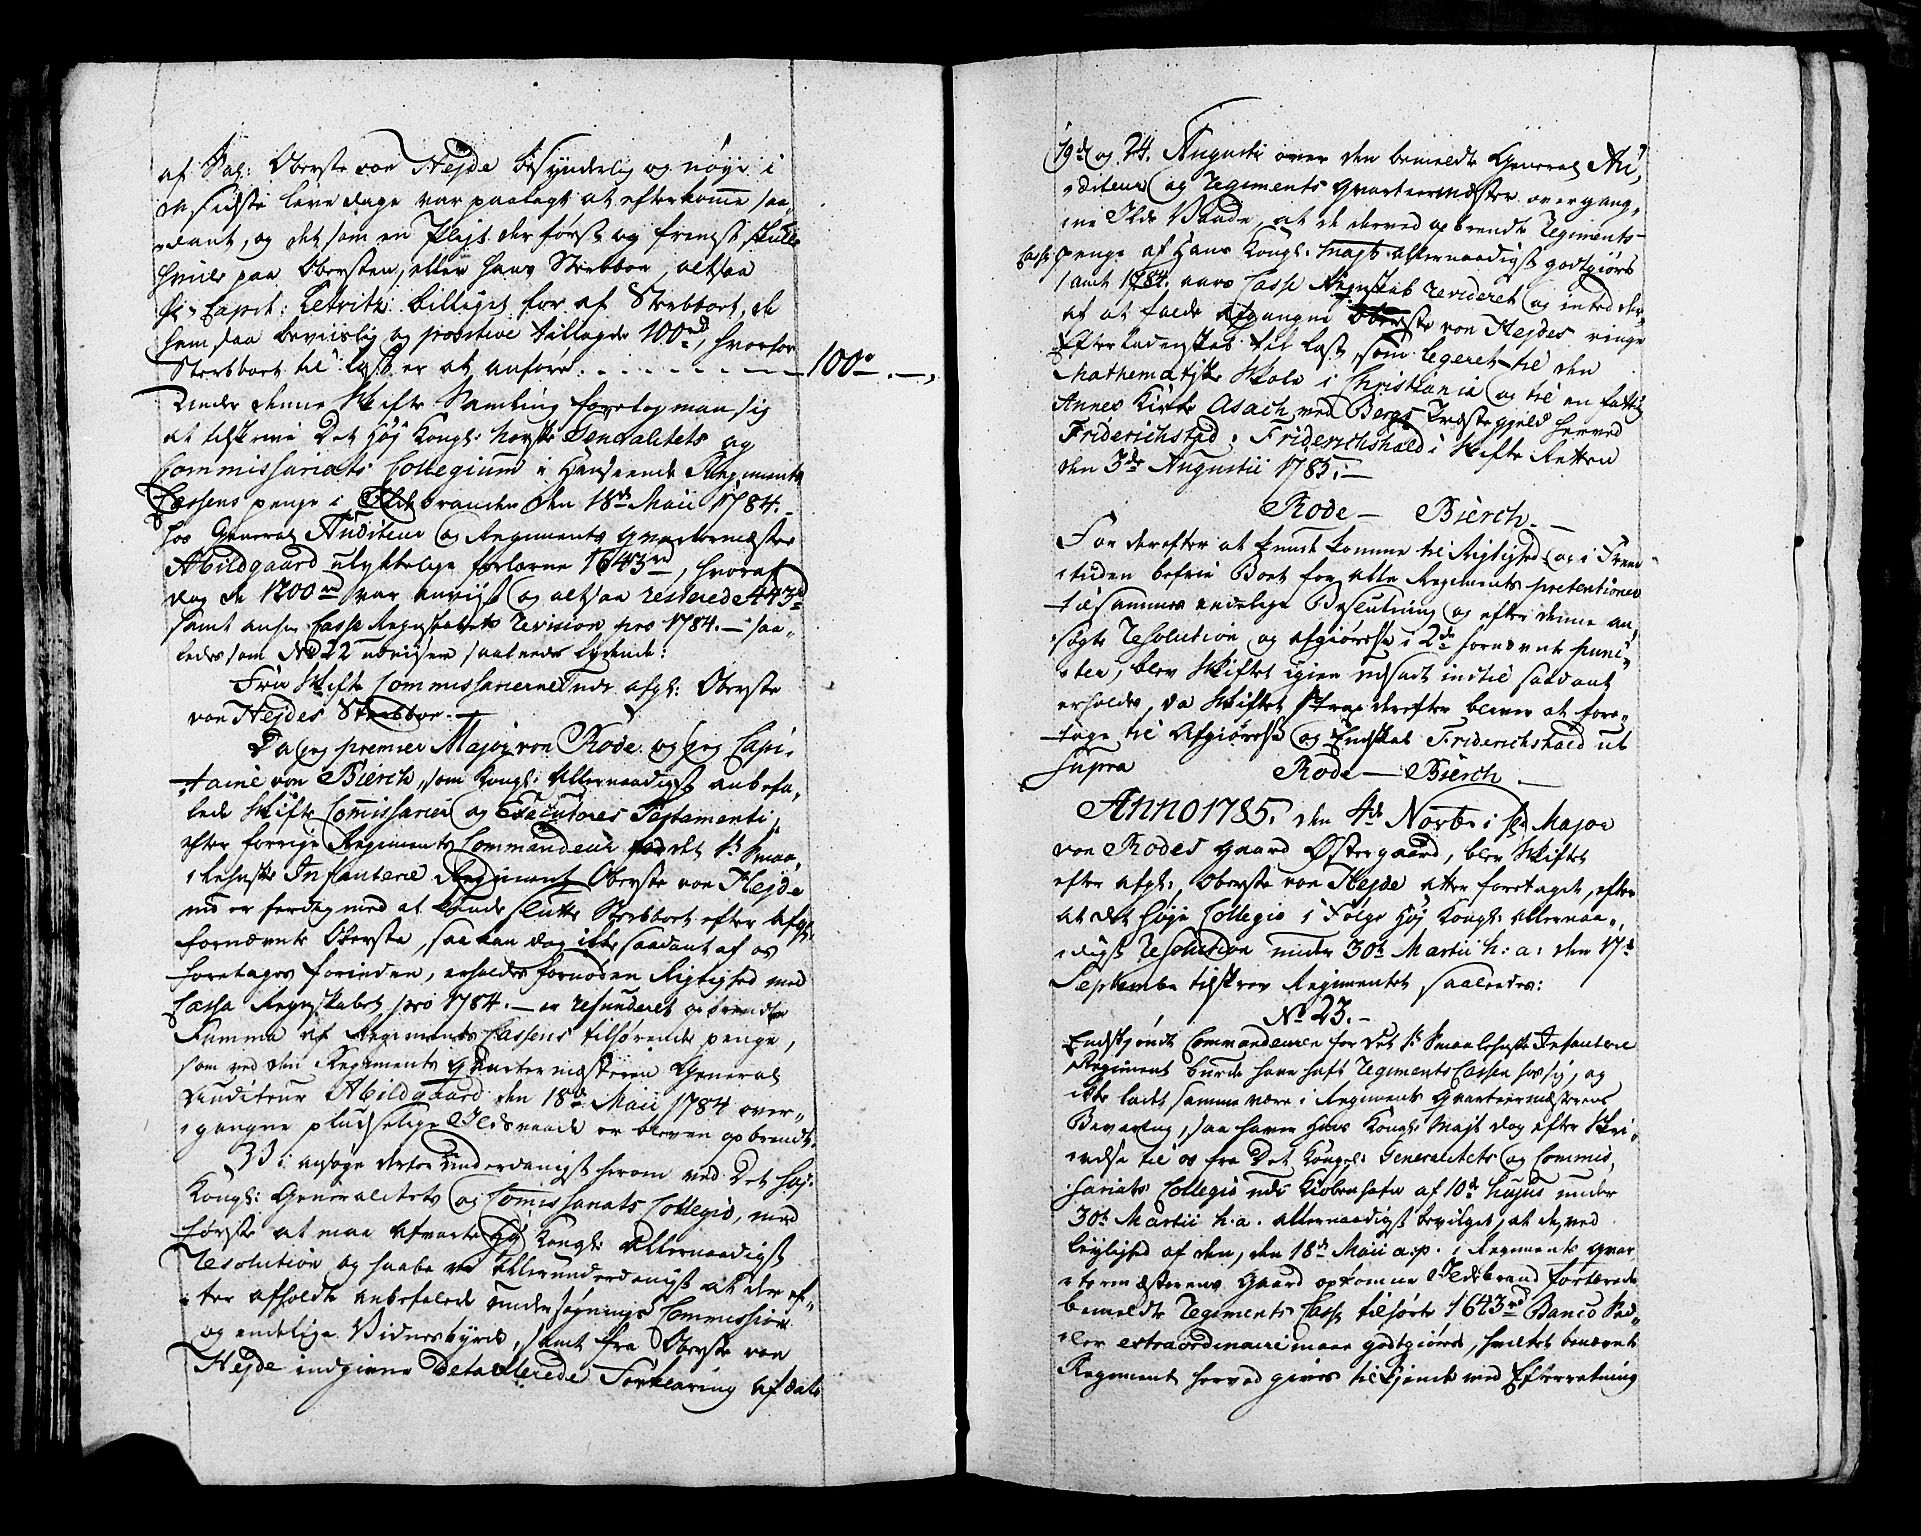 af Sal: Oberste von Hejde besynderlig og nøye i
sidste leve dage var paalagt at efterkomme saa„
„dant, og det som en Pligt der først og fremst skulle
hvile paa Obersten, eller hans Sterbboe, altsaa
Hr Capit: Letvitz billiget for af Sterboet, de
ham saa beviislig og positive tillagde 100rd, hvorfor
Sterbboet til Last er at anføre. . . . . . . . 100„ — „
Under denne Skifte Samling foretog man sig
at tilskrive Det Høj Kongl: norske Generalitets og
Commissariats Collegium i Henseende Regiments
Cassens penge i Ildebranden den 18de Maii 1784.
hos General Auditeur og Regiments qvarteermester
Abildgaard ulykkelige forlorne 1643rd, hvoraf
dog de 1200rd var anviist og altsaa resterede 443rd
samt ans: Casse Regnskabets Revision pro 1784. — saa„
ledes som No 22 udviser saaledes lydende:
Fra Skifte Commissarierne udi afgl: Oberste
von Hejdes Sterbboe. —
Da jeg premier Major von Rode og jeg Capi„
„taine von Bierch, som Kongl: Allernaadigst anbefa„
lede Skifte Commissarier og Executores Testamenti,
efter forrige Regiments Commandeur for det 1te Smaa„
„lehnske Infanterie Regiment Oberste von Hejde
nu er færdig med at kunde slutte Sterbboet efter Afgl:
fornævnte Oberste, saa kan dog ikke saadant af os
foretages forinden, erholdes fornøden Rigtighed med
Cassa Regnskabet pro 1784. — er refunderet opbrendte
Summa af Regiments Cassens tilhørende penge,
som ved den Regiments qvartermesteren General
Auditeur Abildgaard den 18de Maii 1784 over„
„gangne pludselige Ildsvaade er bleven opbrendt.
Vi ansøge derfor underdanigst herom ved Det Høj„
Kongl: Generalitets og Commissariats Collegio, med
første at maa afvarte Høj Kongl: Allernaadigst
Resolution og haabe vi allerunderdanigst at der ef„
„ter afholdte anbefalede undersøgnings Commission
og endelige Vidnesbyrd, samt fra Oberste von
Hejde indgivne Detaillerede Forklaring af dato
19de og 24. Augusti over den bemeldte General Au„
„diteur og Regiments qvarteermester overgang„
„ne Ilds Vaade, at de derved opbrendte Regiments
Casse penge af Hans Kongl: Mayt. allernaadigst godtgiøres
samt 1784. aars Casse Regnskab revideret og intet der„
af at falde afgangne Oberste von Hejdes ringe
Efterladenskab til last, som legeret til den
Mathematiske Skole i Christiania og til en fattig
Annex Kirke Asach ved Bergs Præstegield herved
Friderichstad; Friderichshald i Skifte Retten
den 3de Augustii 1785. —
Rode — Bierch. —
For derefter at kunde komme til Rigtighed og i Frem„
„tiden befrie Boet for alle Regiments prætentioner
tilsammes endelige Beslutning og efter denne an„
„søgte Resolution og afgiørelse i 2de fornævnte puni„
„cter, blev Skiftet igien udsadt indtil saadant
erholdes, da Skiftet strax derefter bliver at fore„
„tage til Afgiørelse og Endskab Friderichshald ut
supra Rode — Bierch —
Anno 1785. den 4de Novbr i Hr Major
von Rodes gaard Østergaard, blev Skiftet
efter afgl: Oberste von Hejde atter foretaget, efter
at det høje Collegio i Følge Høj Kongl: Allernaa„
„digst Resolution under 30te Martii h: a: den 17de
September tilskrev Regimentet saaledes:
No 23. —
Endskjøndt Commandeuren for det 1te Smaalehnske Infanterie
Regiment burde have haft Regiments Cassen hos sig, og
ikke ladt samme være i Regiments qvarteermesterens
Bevaring, saa haver Hans Kongl: Majt dog efter Skri„
„velse til os fra Det Kongel: Generalitets og Commis„
sariats Collegio udi Kiøbenhafn af 10de hujus under
30te Martii h: a. allernaadigst bevilget, at de, ved
leylighed af den, den 18de Maii a: p. i Regiments qvar
„termesterens Gaard opkomne Ildebrand fortærede
bemeldte Regiments Casse tilhørte 1643rd Banco Sed„
„ler extraordinaire maae godtgiøres, hvilket benævnte
Regiment herved gives tilkjende med Efterretning